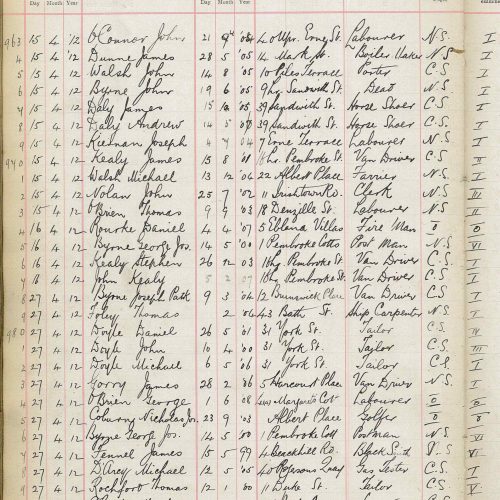 Day Month Year Day Month Year
963 15 4 '12 O'Connor John 21 9 '05 40 Upr. Erne St. Labourer N.S. I
4 15 4 '12 Dunne James 28 5 '05 14 Mark St. Boiler Maker N.S. I
5 15 4 '12 Walsh John 14 8 '05 10 Terrace Porter C.S. I
6 15 4 '12 Byrne John 19 6 '05 Sandwith St. Dead N.S. I
7 15 4 '12 Daly James 15 '05 39 Sandwith St. Horse Shoer C.S. I
8 15 4 '12 Daly Andrew 14 5 39 Sandwith St. Horse Shoer C.S. I
9 15 4 '12 Keenan Joseph 4 7 04 7 Erne Terrace Labourer N.S. I
970 15 4 '12 Kealy James 15 8 Pembroke St. Van Driver C.S. I
1 15 4 '12 Walsh Michael 13 12 '04 22 Albert Place Farrier N.S. I
2 15 4 '12 Nolan John 25 7 '02 Irishtown Rd. Clerk N.S. III
3 15 4 '12 O'Brien Thomas 9 9 03 18 Denzille St. Labourer N.S. II
4 16 4 '12 Rourke Daniel 4 4 '07 5 Eblana Villas Fire Man 0 0
5 16 4 '12 Byrne George Jos. 14 5 '00 1 Pembroke Cotts Post Man N.S. VI
6 16 4 '12 Kealy Stephen 26 12 03 Pembroke St. Van Driver C.S. I
7 18 4 '12 John Kealy 5 2 07 Pembroke St. Van Driver C.S. I
8 27 4 '12 Byrne Joseph Patk 9 3 04 12 Brunswick Place Van Driver C.S. I
9 27 4 '12 Foley Thomas 2 06 43 Bath St. Ship Carpenter N.S. I
980 27 4 '12 Doyle Daniel 26 5 '01 31 York St. Tailor C.S.
1 27 4 '12 Doyle John 10 4 '00 31 York St. Tailor C.S. III
2 27 4 '12 Doyle Michael 6 5 '06 31 York St. Tailor C.S. I
3 27 4 '12 Gorry James 28 2 '36 5 Harcourt Place Van Driver N.S. I
4 27 4 '12 O'Brien George 1 6 08 Margaret Cot Labourer 0 0
5 27 4 '12 Nicholas Jos. 23 9 '03 Albert Place Golfer 0 0
6 27 4 '12 Byrne George Jos. 14 5 '00 1 Pembroke Cott Postman N.S. VI
7 27 4 '12 Fennel James 15 5 '99 4 Beechhill Rd. N.S. VI
4 27 4 '12 D'Arcy Michael 12 5 '05 40 Rogersons Quay Gas C.S. I
27 4 '12 Rochfort Thomas 12 1 '00 11 Duke St. Tailor C.S. I